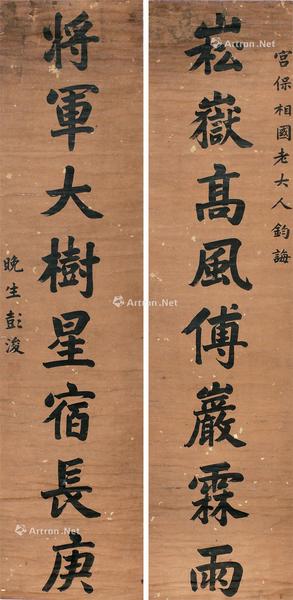 宮保相國老大人鈞誨
崧嶽高風傅巖霖雨
將軍大樹星宿長庚
晚生彭浚
Artron.Net
Artron.Net
Artron.Net
Artron.Net
Artron.Net
Artron.Net